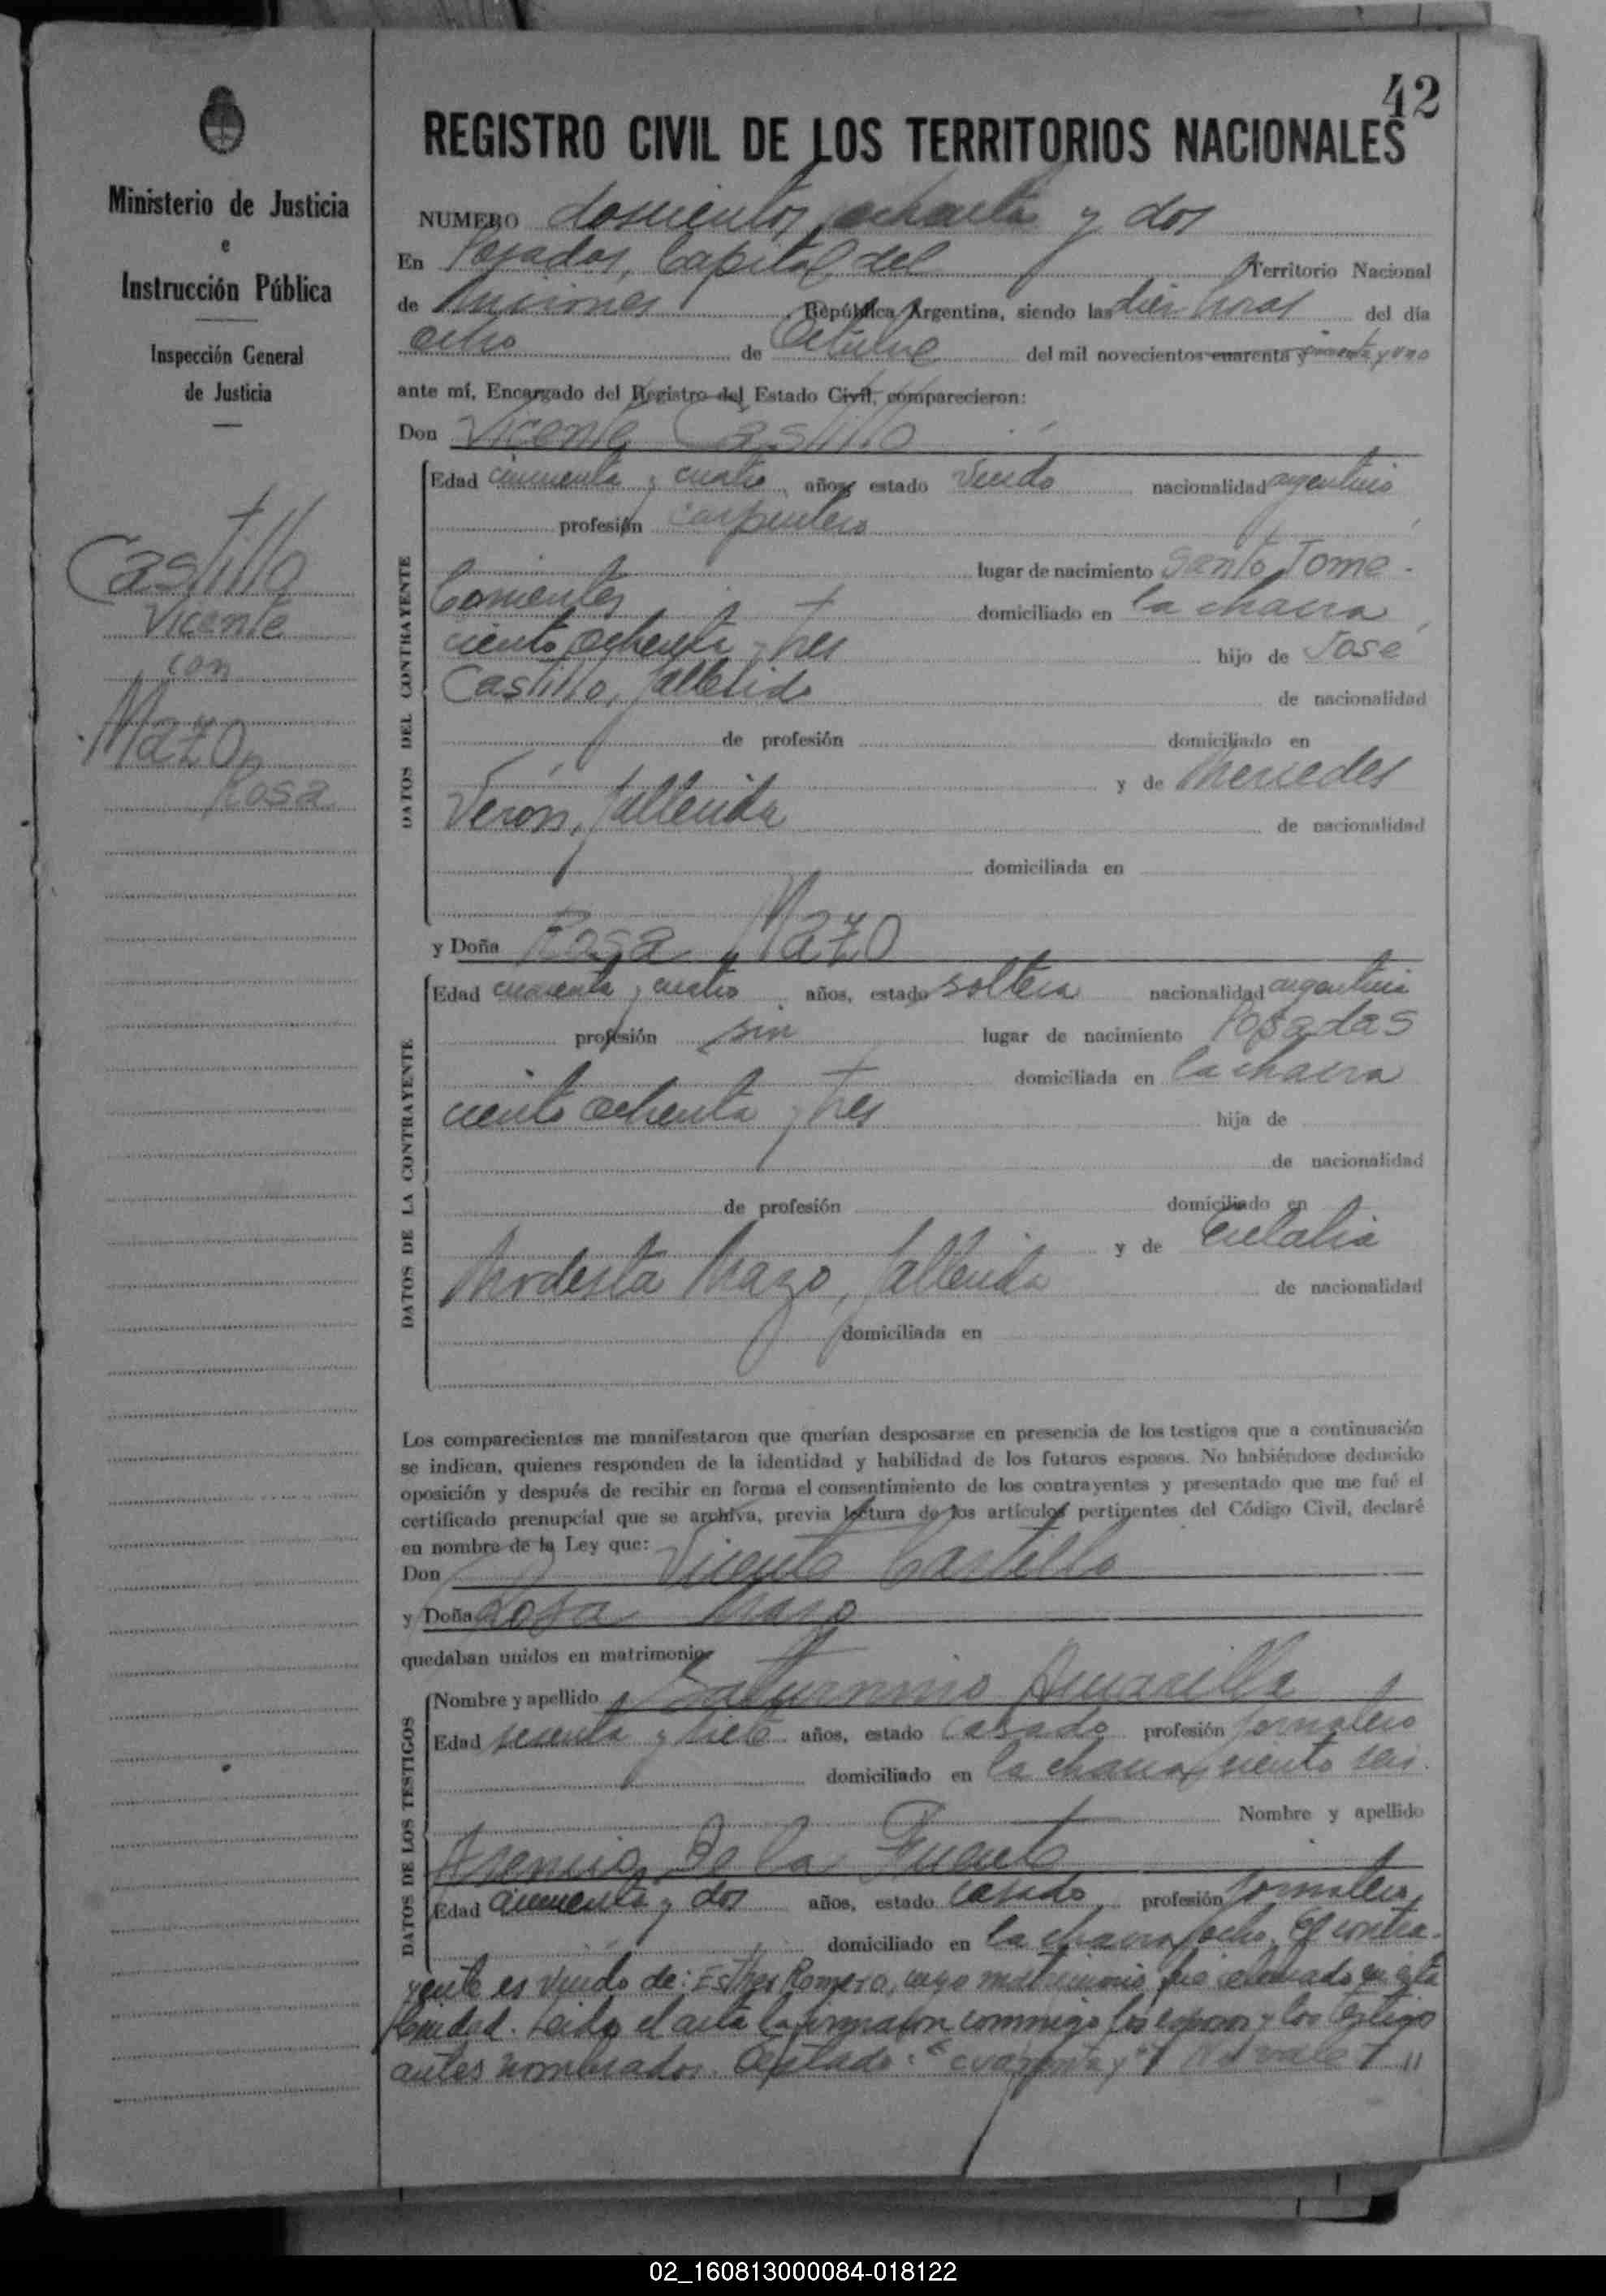 42
REGISTRO CIVIL DE LOS TERRITORIOS NACIONALES
Ministerio de Justicia
e
Instrucción Pública
Inspección General
de Justicia
Castillo
Vicente
con
Mazo
Rosa
NUMERO doscientos ochenta y dos
En Posadas, Capital del Territorio Nacional
de Misiones, República Argentina, siendo las diez horas del día
ocho de Octubre del mil novecientos cuarenta y cincuenta y uno
ante mí, Encargado del Registro del Estado Civil, comparecieron:
Don Vicente Castillo
DATOS DEL CONTRAYENTE
Edad cincuenta y cuatro años, estado Viudo nacionalidad argentino
profesión carpintero
lugar de nacimiento Santo Tomé -
Corrientes domiciliado en la chacra
ciento ochenta y tres hijo de José
Castillo, fallecido de nacionalidad
de profesión domiciliado en
y de Mercedes
Verón, fallecida de nacionalidad
domiciliada en
y Doña Rosa Mazo
DATOS DE LA CONTRAYENTE
Edad cuarenta y cuatro años, estado soltera nacionalidad argentina
profesión sin lugar de nacimiento Posadas
domiciliada en la chacra
ciento ochenta y tres hija de
de nacionalidad
de profesión domiciliado en
y de Eulalia
Modesta Mazo, fallecida de nacionalidad
domiciliada en
Los comparecientes me manifestaron que querían desposarse en presencia de los testigos que a continuación
se indican, quienes responden de la identidad y habilidad de los futuros esposos. No habiéndose deducido
oposición y después de recibir en forma el consentimiento de los contrayentes y presentado que me fué el
certificado prenupcial que se archiva, previa lectura de los artículos pertinentes del Código Civil, declaré
en nombre de la Ley que:
Don Vicente Castillo
y Doña Rosa Mazo
quedaban unidos en matrimonio
DATOS DE LOS TESTIGOS
Nombre y apellido Saturnino Amarilla
Edad sesenta y siete años, estado casado profesión jornalero
domiciliado en la chacra ciento seis.
Nombre y apellido
Asencio De la Fuente
Edad cincuenta y dos años, estado casado profesión jornalero,
domiciliado en la chacra ocho. El contra-
yente es viudo de: Esther Romero, cuyo matrimonio fue efectuado en esta
Ciudad. Leida el acta la firmaron conmigo los esposos y los testigos
antes nombrados. "cuarenta y" No vale
02_160813000084-018122